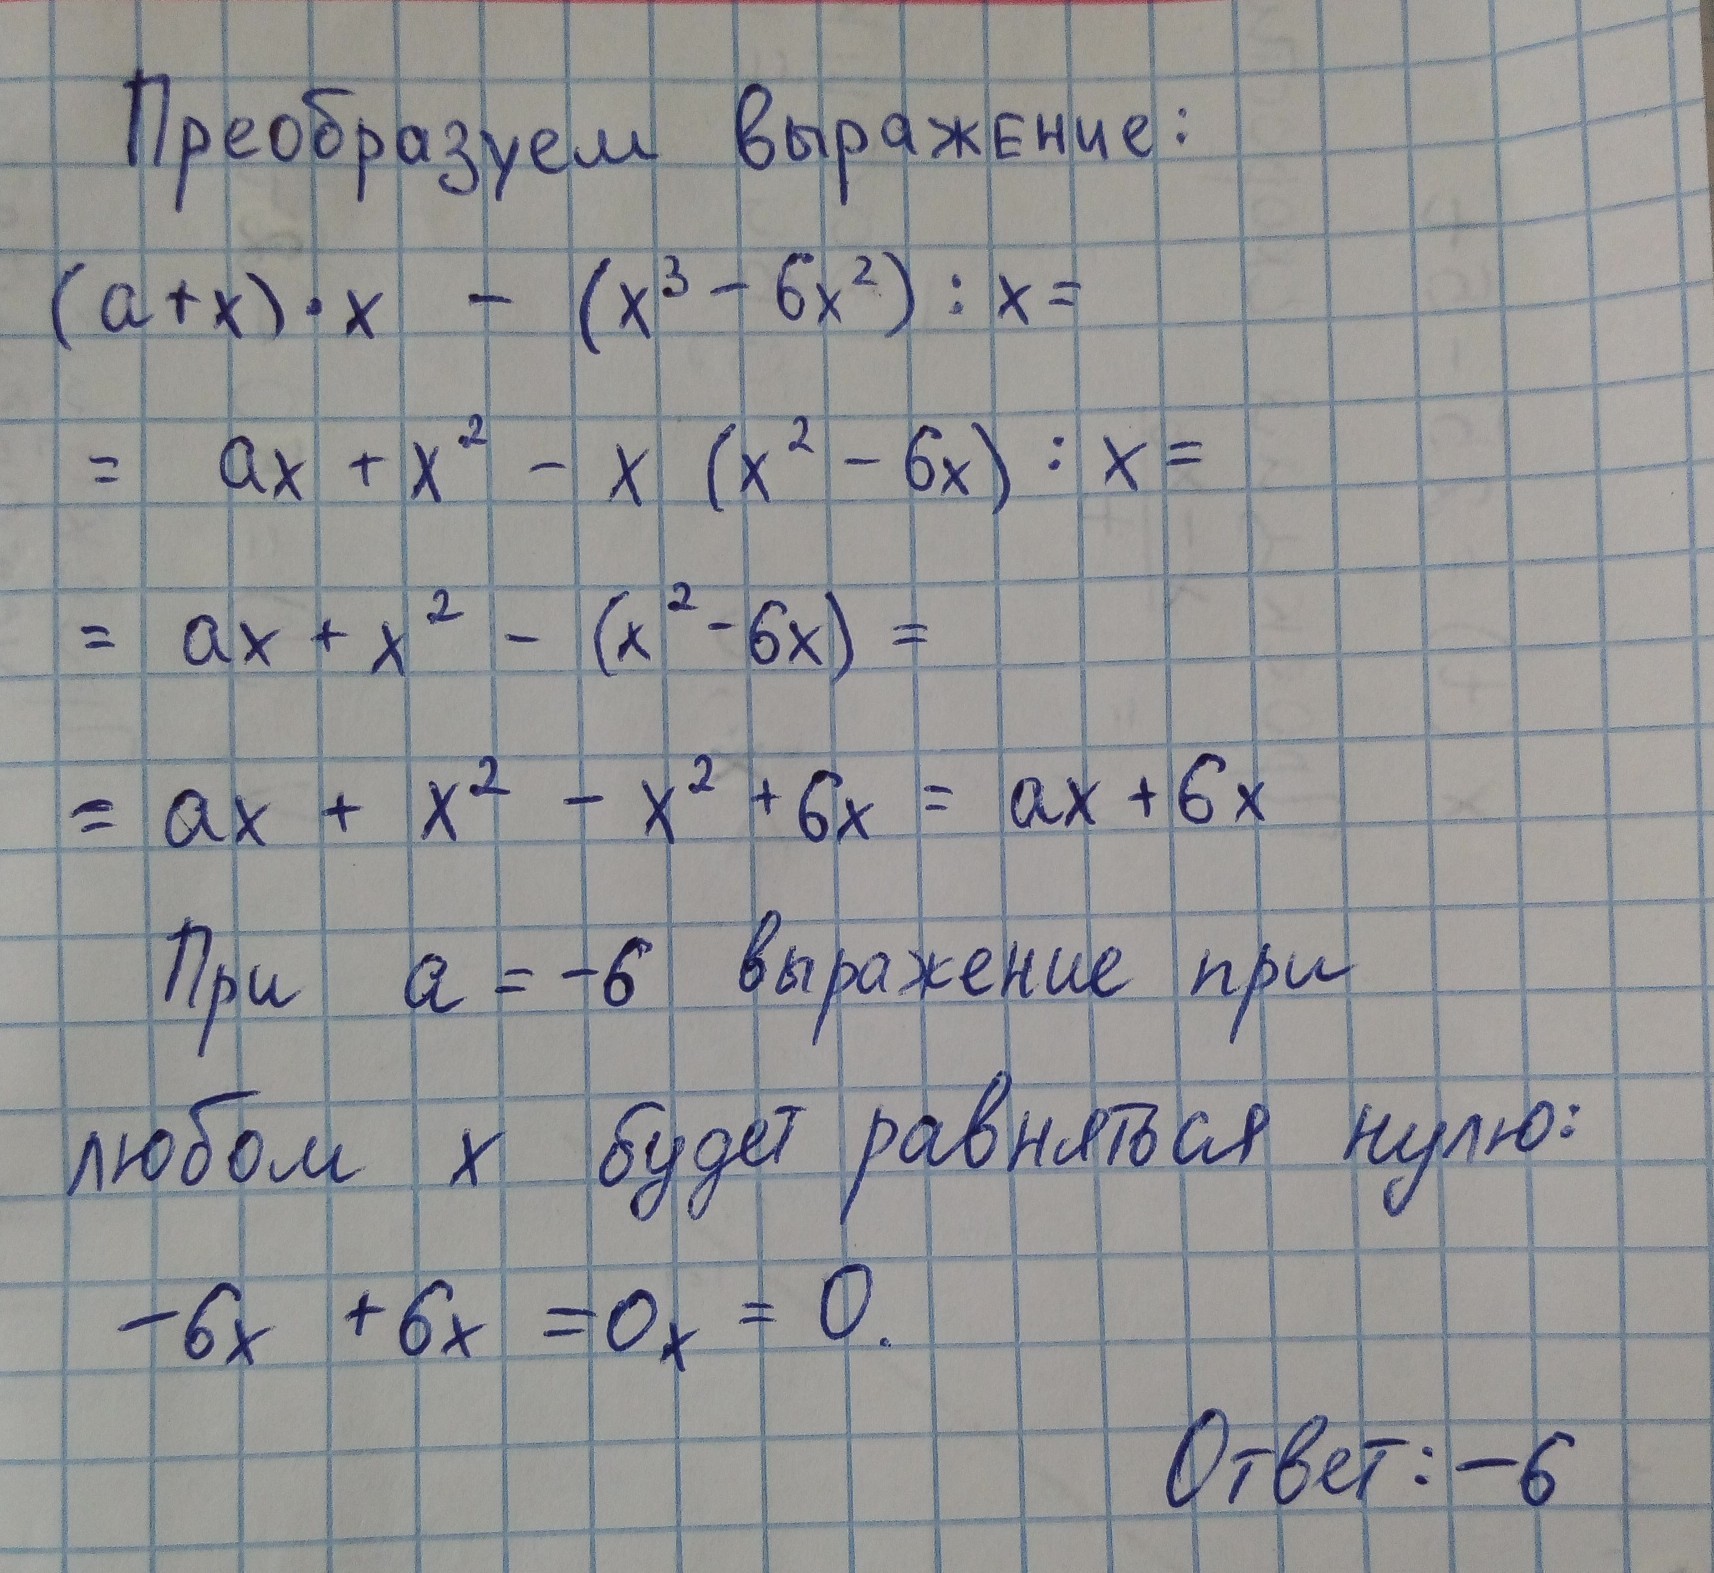 Преобразуем выражение:
(a+x)·x - (x³-6x²):x=
= ax + x² - x (x² - 6x) : x =
= ax + x² - (x²-6x) =
= ax + x² - x² + 6x = ax + 6x
При a = -6 выражение при
любом x будет равняться нулю:
-6x +6x =0x = 0.
Ответ: -6